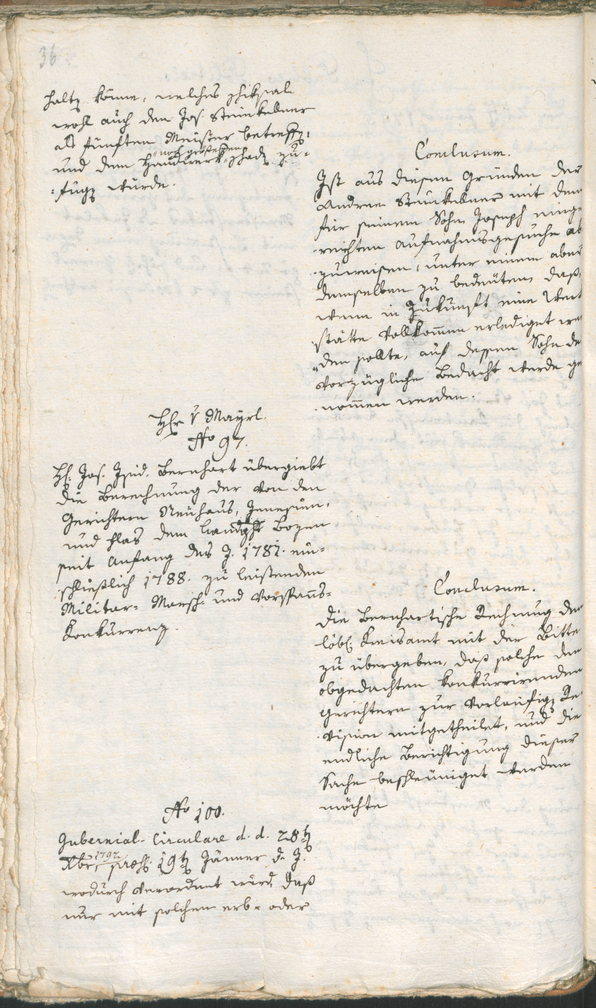 36
haltz könne, welches Schiksal
wohl auch den Jos. Stuckelner
als fünften Meister betreffen,
noch größeren
und dem Handwerk Schade zu-
fügen würde.
Conclusum.
Ist aus diesen Gründen der
Andree Stuckelner mit dem
für seinen Sohn Joseph einge-
reichten Aufnahmsgesuche ab
zuweisen, unter einem aber
demselben zu bedeuten, daß,
wenn in Zukunft eine Werk
stätte vollkommen erlediget wer
den sollte, auf dessen Sohn der
vorzügliche Bedacht werde ge
nommen werden.
Hr. v Mayrl.
No 97.
H. Jos. Isid. Bernhart übergiebt
die Berechnung der von den
Gerichtern Neuhaus, Jenesien,
und Flas dem Landgt. Bozen
seit Anfang des J. 1781. ein-
schließlich 1788. zu leistenden
Militar- Marsch- und Vorspanns-
Konkurrenz.
Conclusum.
Die Bernhartische Rechnung dem
löbl. Kreisamt mit der Bitte
zu übergeben, daß solche den
obgedachten konkurrirenden
Gerichtern zur vorläufigen Re
vision mitgetheilet, und die
endliche Berichtigung dieser
Sache beschleuniget werden
möchte
No 100.
Gubernial- Circulare d. d. 28ten
1792
Xbr. præs. 19ten Jänner d. J.
wodurch verordnet wird, daß
nur mit solchen erb- oder